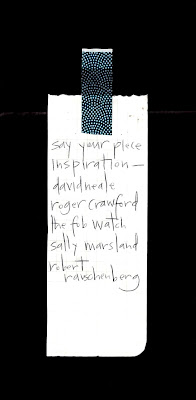 say your piece
inspiration –
david neale
roger crawford
the fob watch
sally marsland
robert
rauschenberg